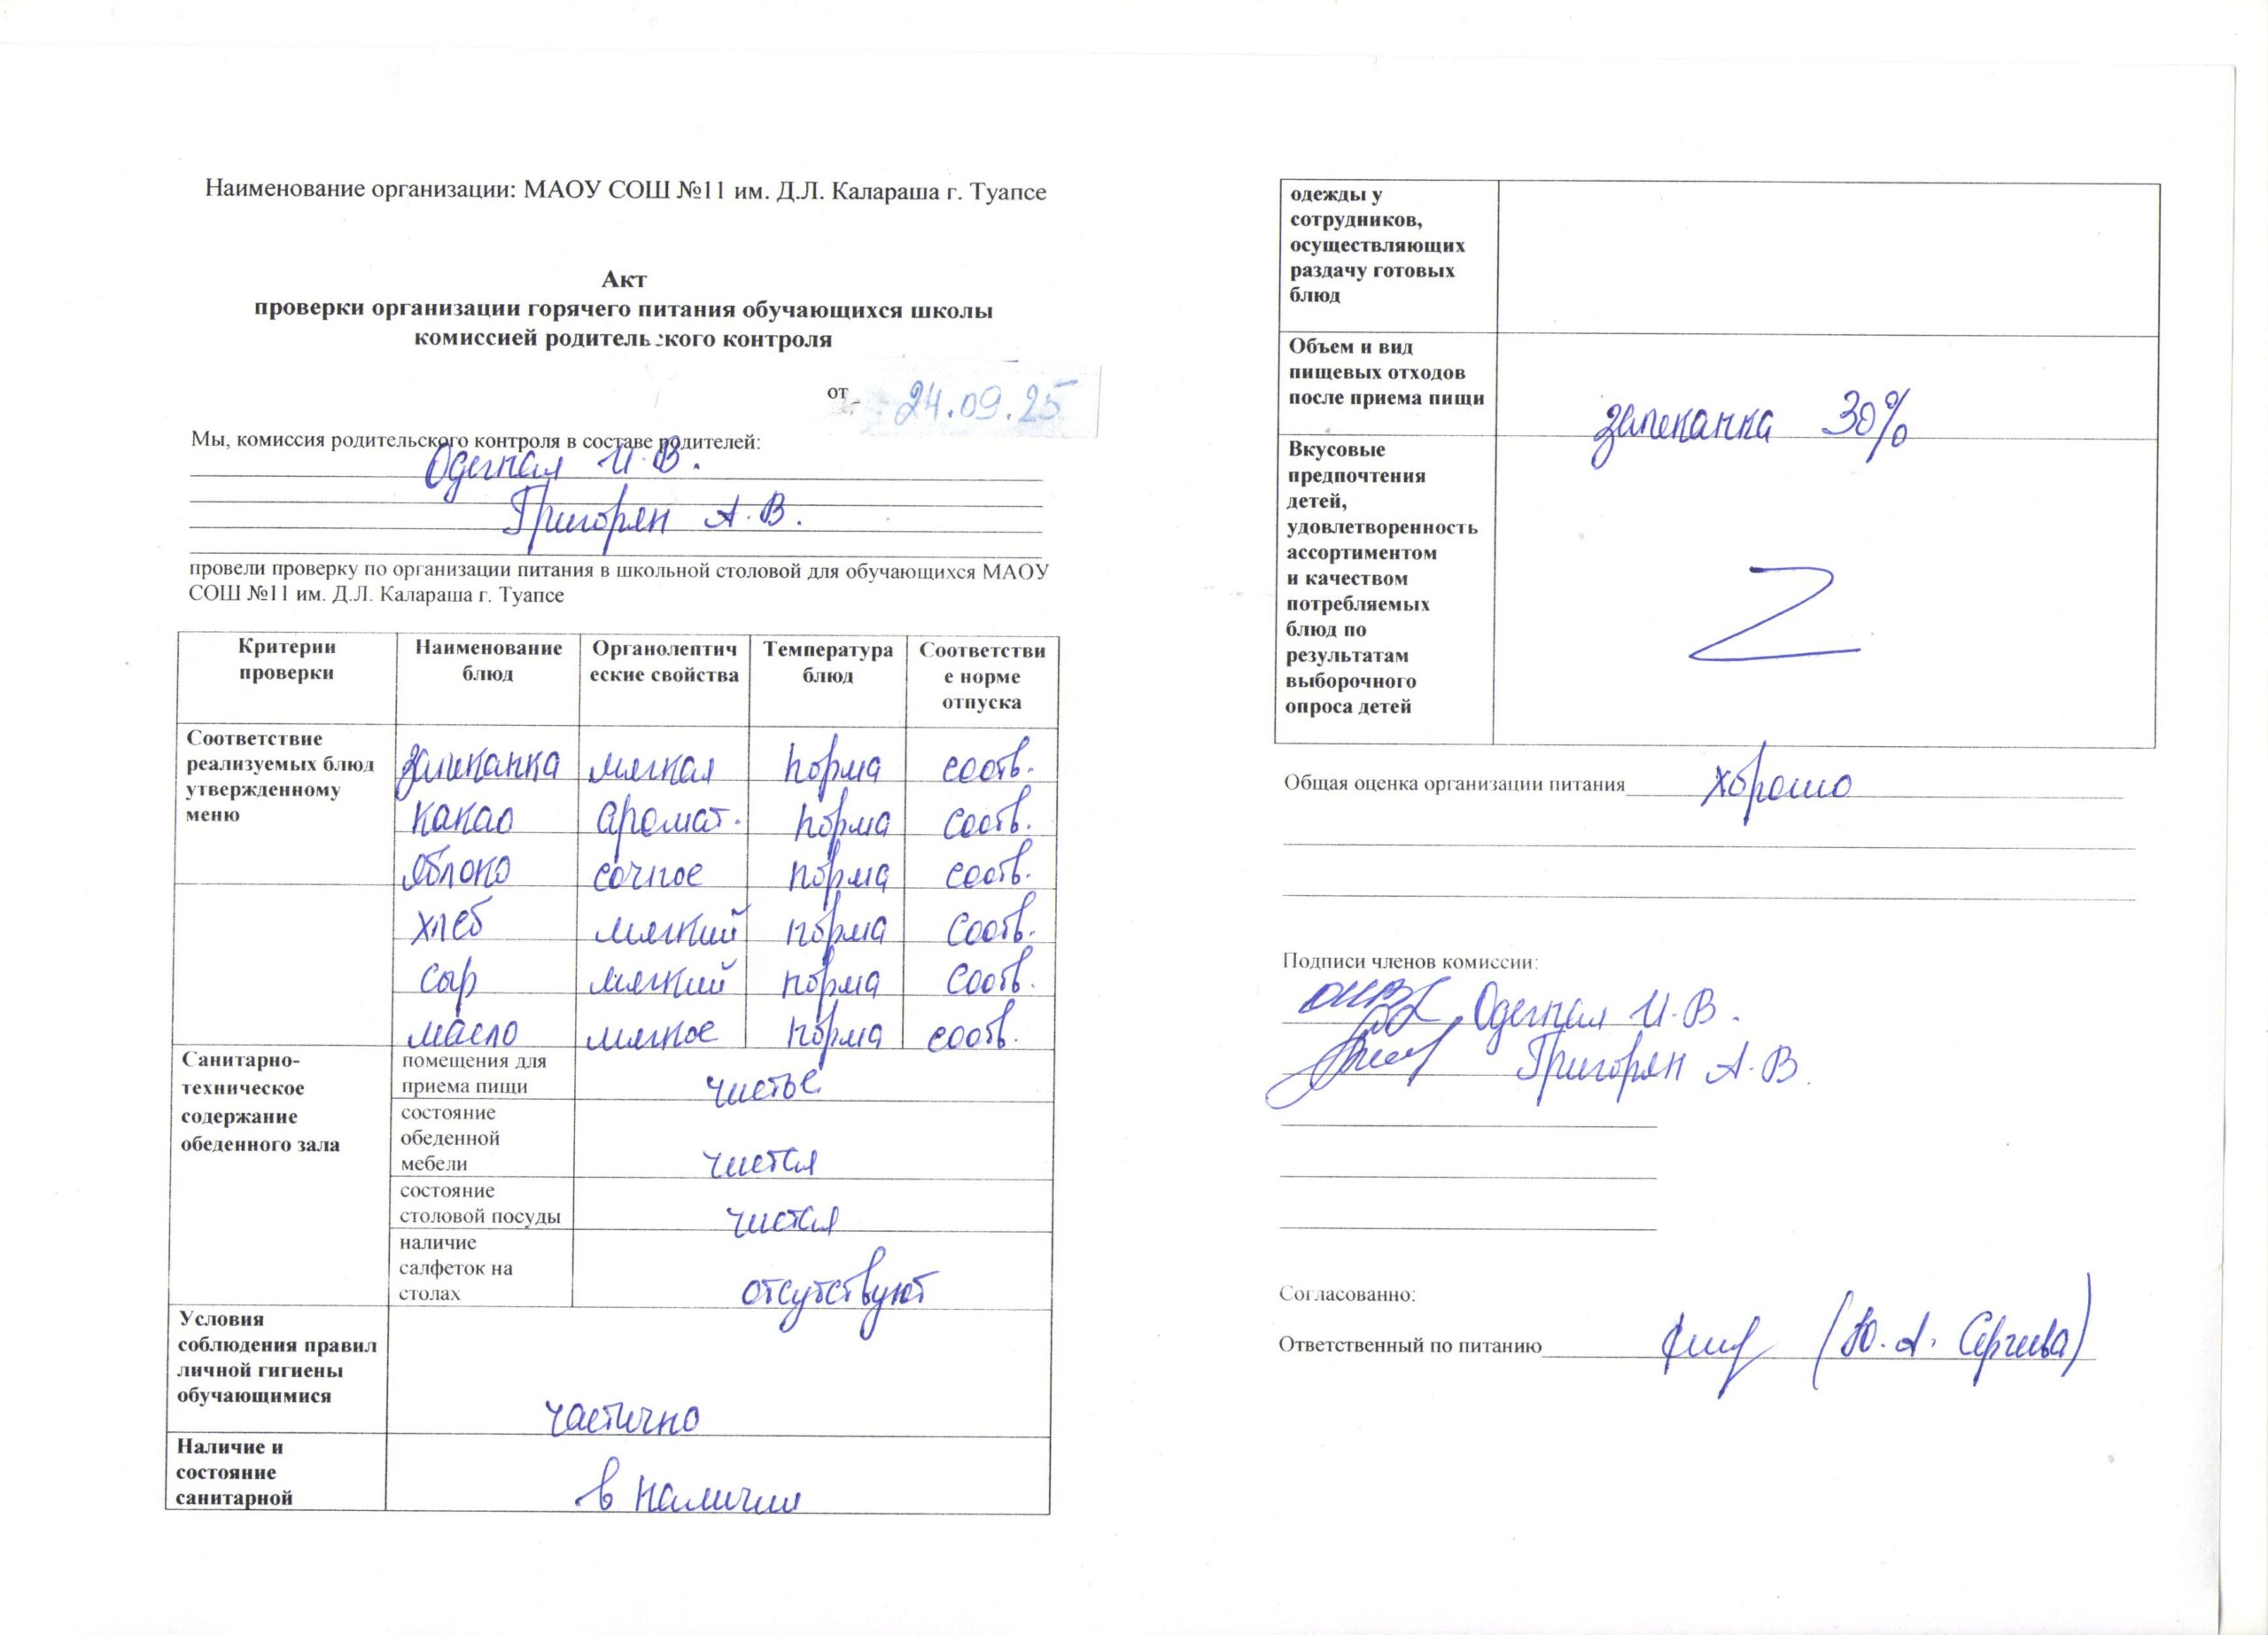 Наименование организации: МАОУ СОШ №11 им. Д.Л. Калараша г. Туапсе
Акт
проверки организации горячего питания обучающихся школы
комиссией родительского контроля
от 24.09.25
Мы, комиссия родительского контроля в составе родителей:
И.В.
Григорян А.В.
провели проверку по организации питания в школьной столовой для обучающихся МАОУ
СОШ №11 им. Д.Л. Калараша г. Туапсе
Критерии проверки Наименование блюд Органолептические свойства Температура блюд Соответствие норме отпуска
Соответствие
реализуемых блюд
утвержденному
меню
запеканка мягкая норма соотв.
какао аромат. норма соотв.
яблоко сочное норма соотв.
хлеб мягкий норма соотв.
сыр мягкий норма соотв.
масло мягкое норма соотв.
Санитарно-
техническое
содержание
обеденного зала
помещения для
приема пищи чистые
состояние
обеденной
мебели чистая
состояние
столовой посуды чистая
наличие
салфеток на
столах отсутствуют
Условия
соблюдения правил
личной гигиены
обучающимися частично
Наличие и
состояние
санитарной в наличии
одежды у
сотрудников,
осуществляющих
раздачу готовых
блюд
Объем и вид
пищевых отходов
после приема пищи запеканка 30%
Вкусовые
предпочтения
детей,
удовлетворенность
ассортиментом
и качеством
потребляемых
блюд по
результатам
выборочного
опроса детей
Общая оценка организации питания хорошо
Подписи членов комиссии:
И.В.
Григорян А.В.
Согласованно:
Ответственный по питанию (Ю.А. Сергеева)